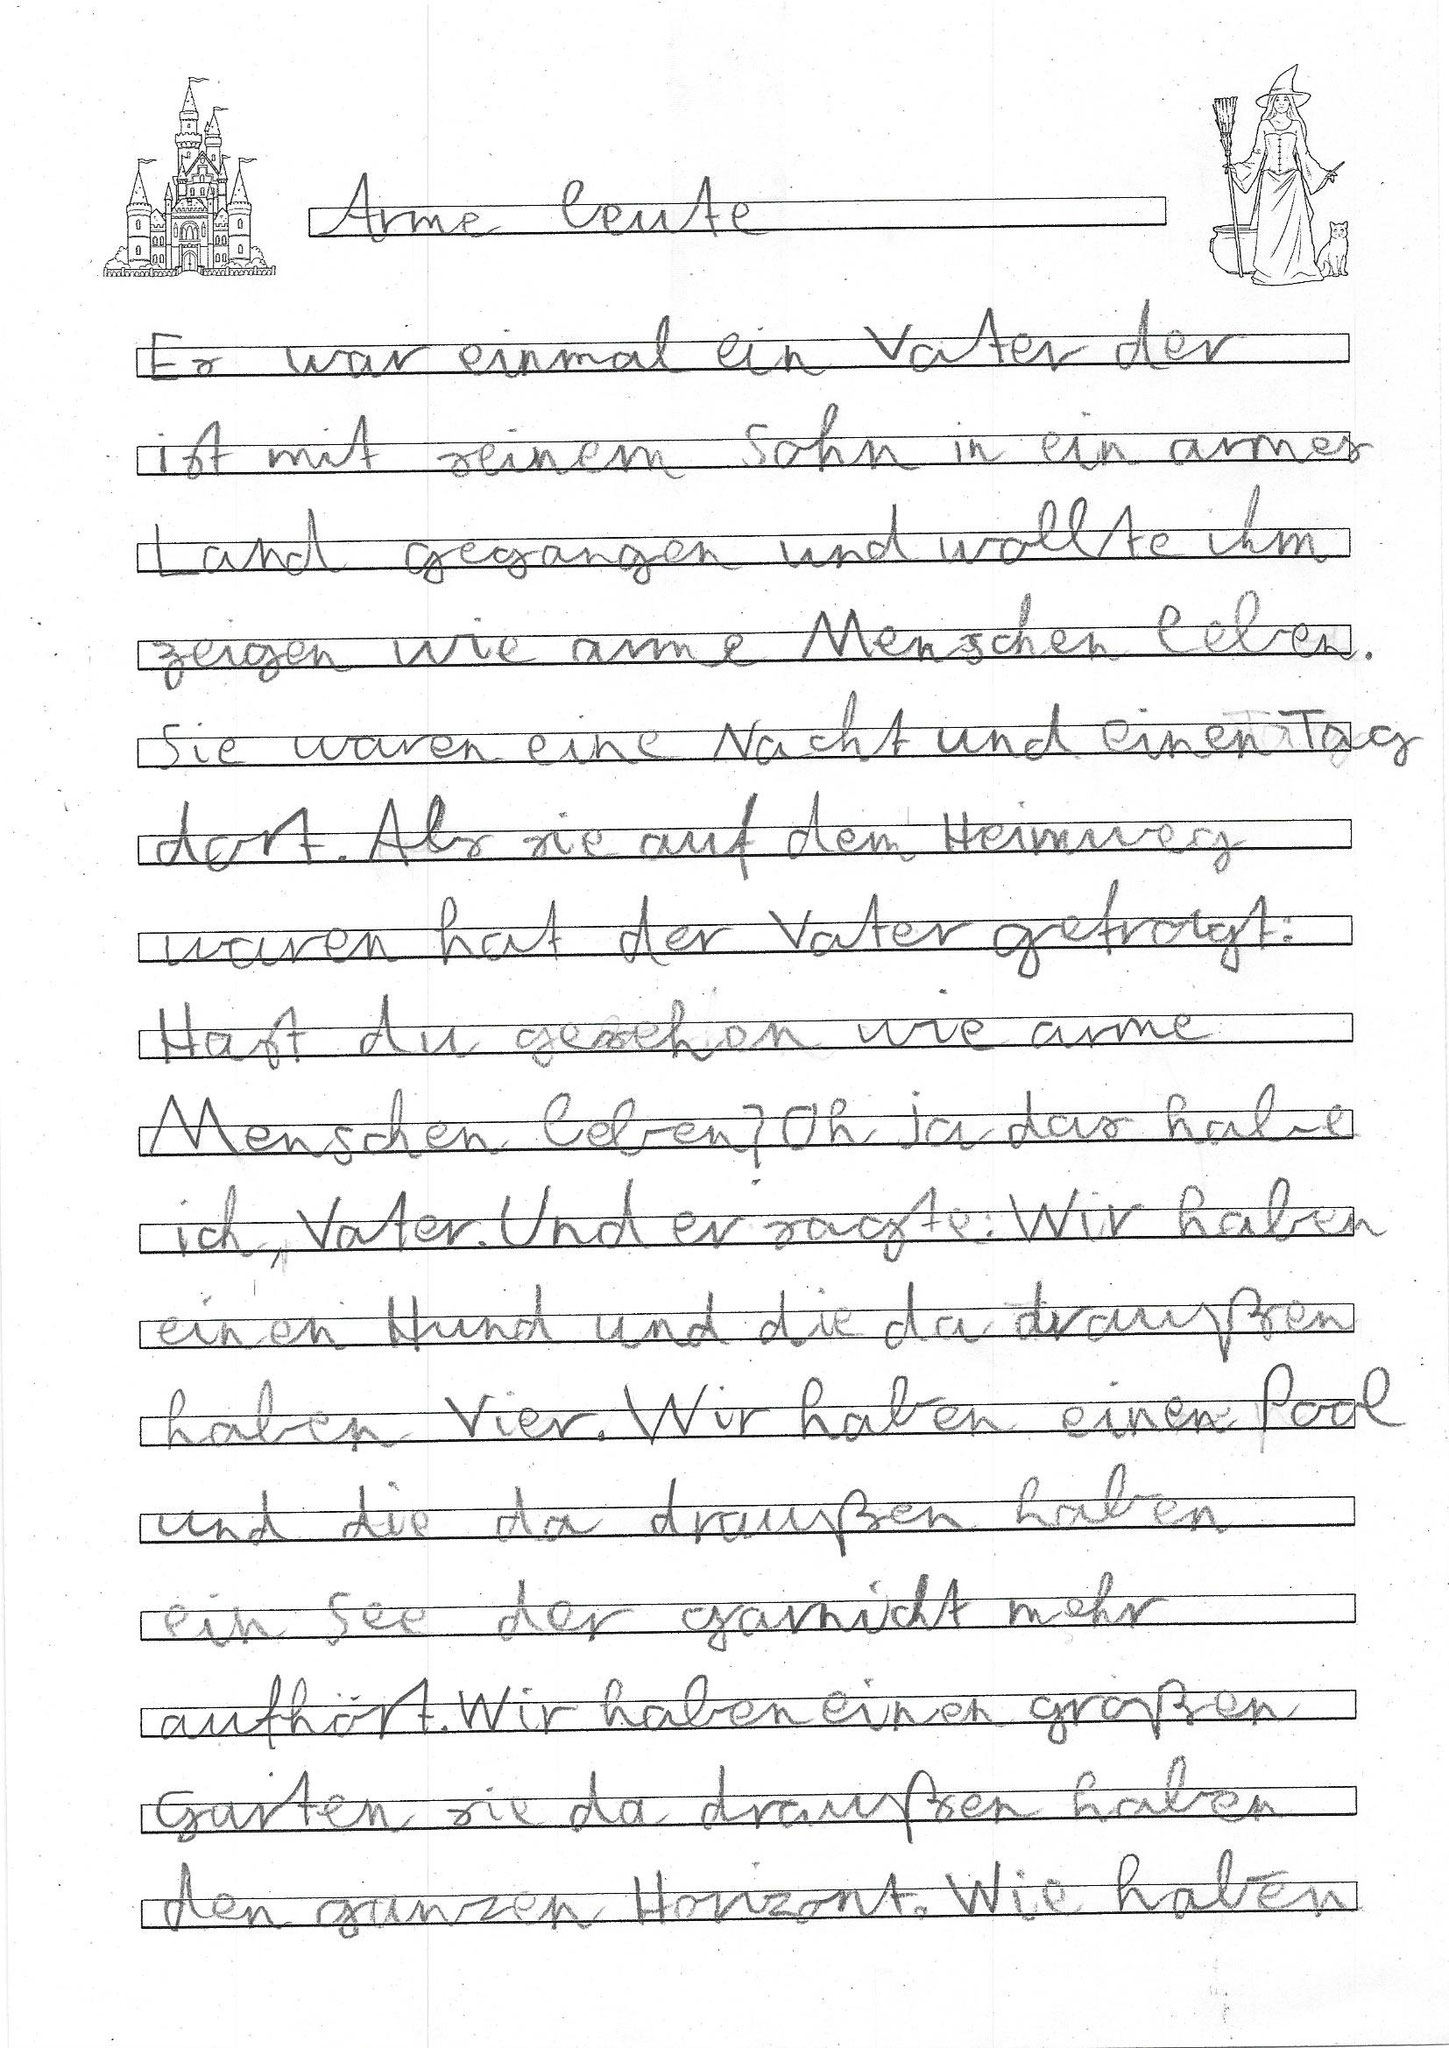 Arme leute
Es war einmal ein Vater der
ist mit seinem Sohn in ein armes
Land gegangen und wollte ihm
zeigen wie arme Menschen leben.
Sie waren eine Nacht und einen Tag
dort. Als sie auf dem Heimweg
waren hat der Vater gefragt:
Hast du gesehen wie arme
Menschen leben? Oh ja das habe
ich, Vater. Und er sagte: Wir haben
einen Hund und die da draußen
haben Vier. Wir haben einen Pool
und die da draußen haben
ein See der garnicht mehr
aufhört. Wir haben einen großen
Garten sie da draußen haben
den ganzen Horizont. Wie haben